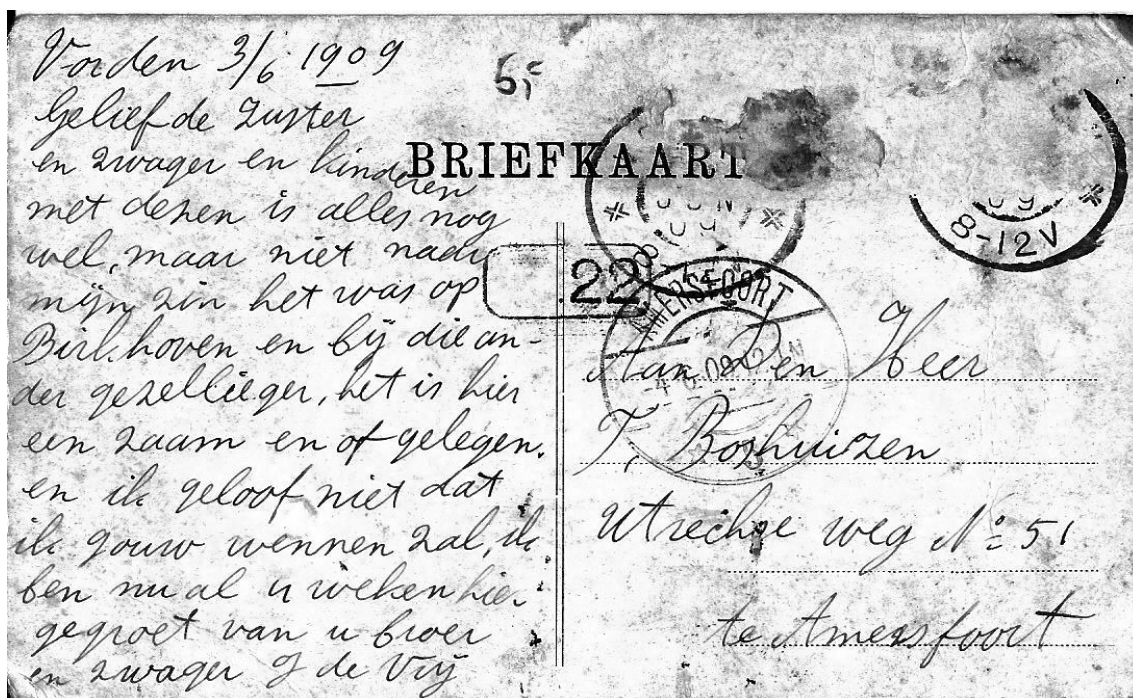 Vorden 3/6 1909
Geliefde Zuster
en zwager en kinderen
met dezen is alles nog
wel, maar niet naar
mijn zin het was op
Birkhoven en bij die an-
der gezellieger, het is hier
een zaam en of gelegen.
en ik geloof niet dat
ik gouw wennen zal, ik
ben nu al u weken hier
gegroet van u broer
en zwager G de Vrij
BRIEFKAART
8-12V
22
AMERSFOORT
Aan Den Heer
T, Boshuizen
Utrechse weg No 51
te Amersfoort